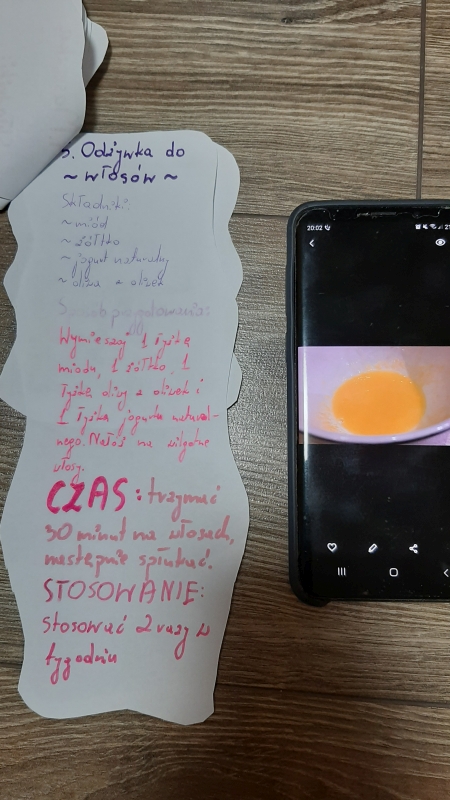 5. Odżywka do
~ włosów ~
Składniki:
~ miód
~ żółtko
~ jogurt naturalny
~ oliwa z oliwek
Sposób przygotowania:
Wymieszaj 1 łyżkę
miodu, 1 żółtko, 1
łyżkę oliwy z oliwek i
1 łyżkę jogurtu natural-
nego. Nałóż na wilgotne
włosy.
CZAS: trzymać
30 minut na włosach,
następnie spłukać.
STOSOWANIE:
Stosować 2 razy w
tygodniu
20:02